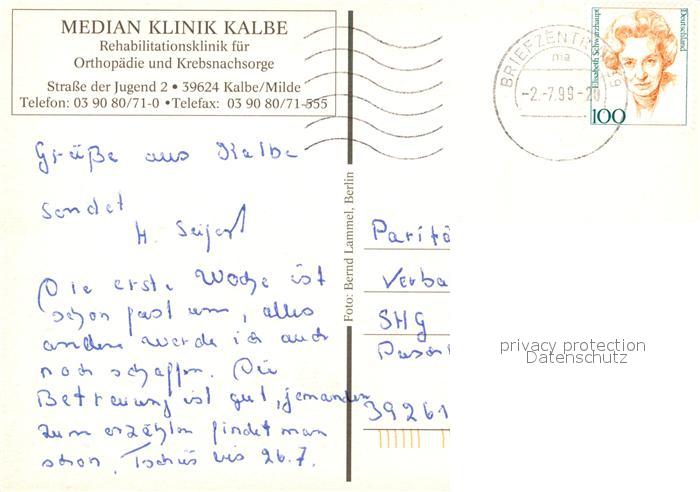 MEDIAN KLINIK KALBE
Rehabilitationsklinik für
Orthopädie und Krebsnachsorge
Straße der Jugend 2 • 39624 Kalbe/Milde
Telefon: 03 90 80/71-0 • Telefax: 03 90 80/71-555
BRIEFZENTR
ma
-2.-7.99-20
39
Elisabeth Schwarzhaupt
Deutschland
100
Grüße aus Kalbe
sendet
H. Seifert
Die erste Woche ist
schon fast um, alles
andere werde ich auch
noch schaffen. Die
Betreuung ist gut, jemanden
zum erzählen findet man
schon. Tschüs bis 26.7.
Foto: Bernd Lammel, Berlin
Paritä
Verba
SHG
39261
privacy protection
Datenschutz